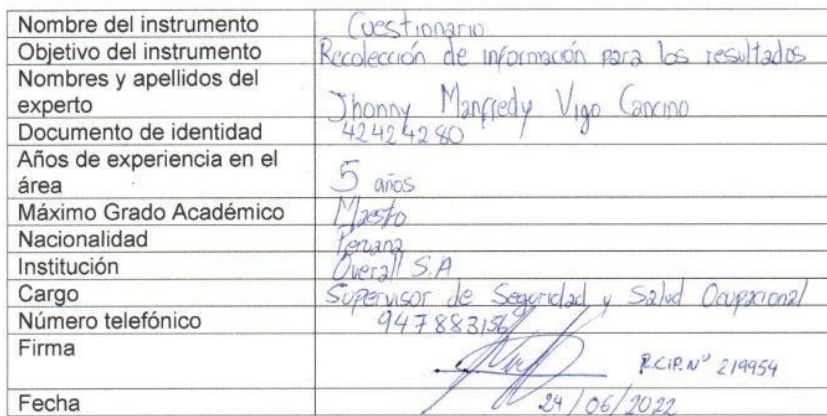 Nombre del instrumento Cuestionario
Objetivo del instrumento Recolección de información para los resultados
Nombres y apellidos del
experto Jhonny Manfredy Vigo Cancino
Documento de identidad 42424280
Años de experiencia en el
área 5 años
Máximo Grado Académico Maestro
Nacionalidad Peruana
Institución Overall S.A
Cargo Supervisor de Seguridad y Salud Ocupacional
Número telefónico 947883156
Firma R.CIP.Nº 219954
Fecha 24/06/2022